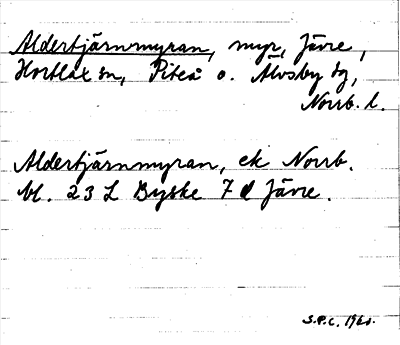 Aldertjärnmyran, myr, Jävre,
Hortlax sn, Piteå o. Älvsby tg,
Norrb. l.
Aldertjärnmyran, ek Norrb.
bl. 23 L Byske 7 d Jävre.
S.P.C. 196